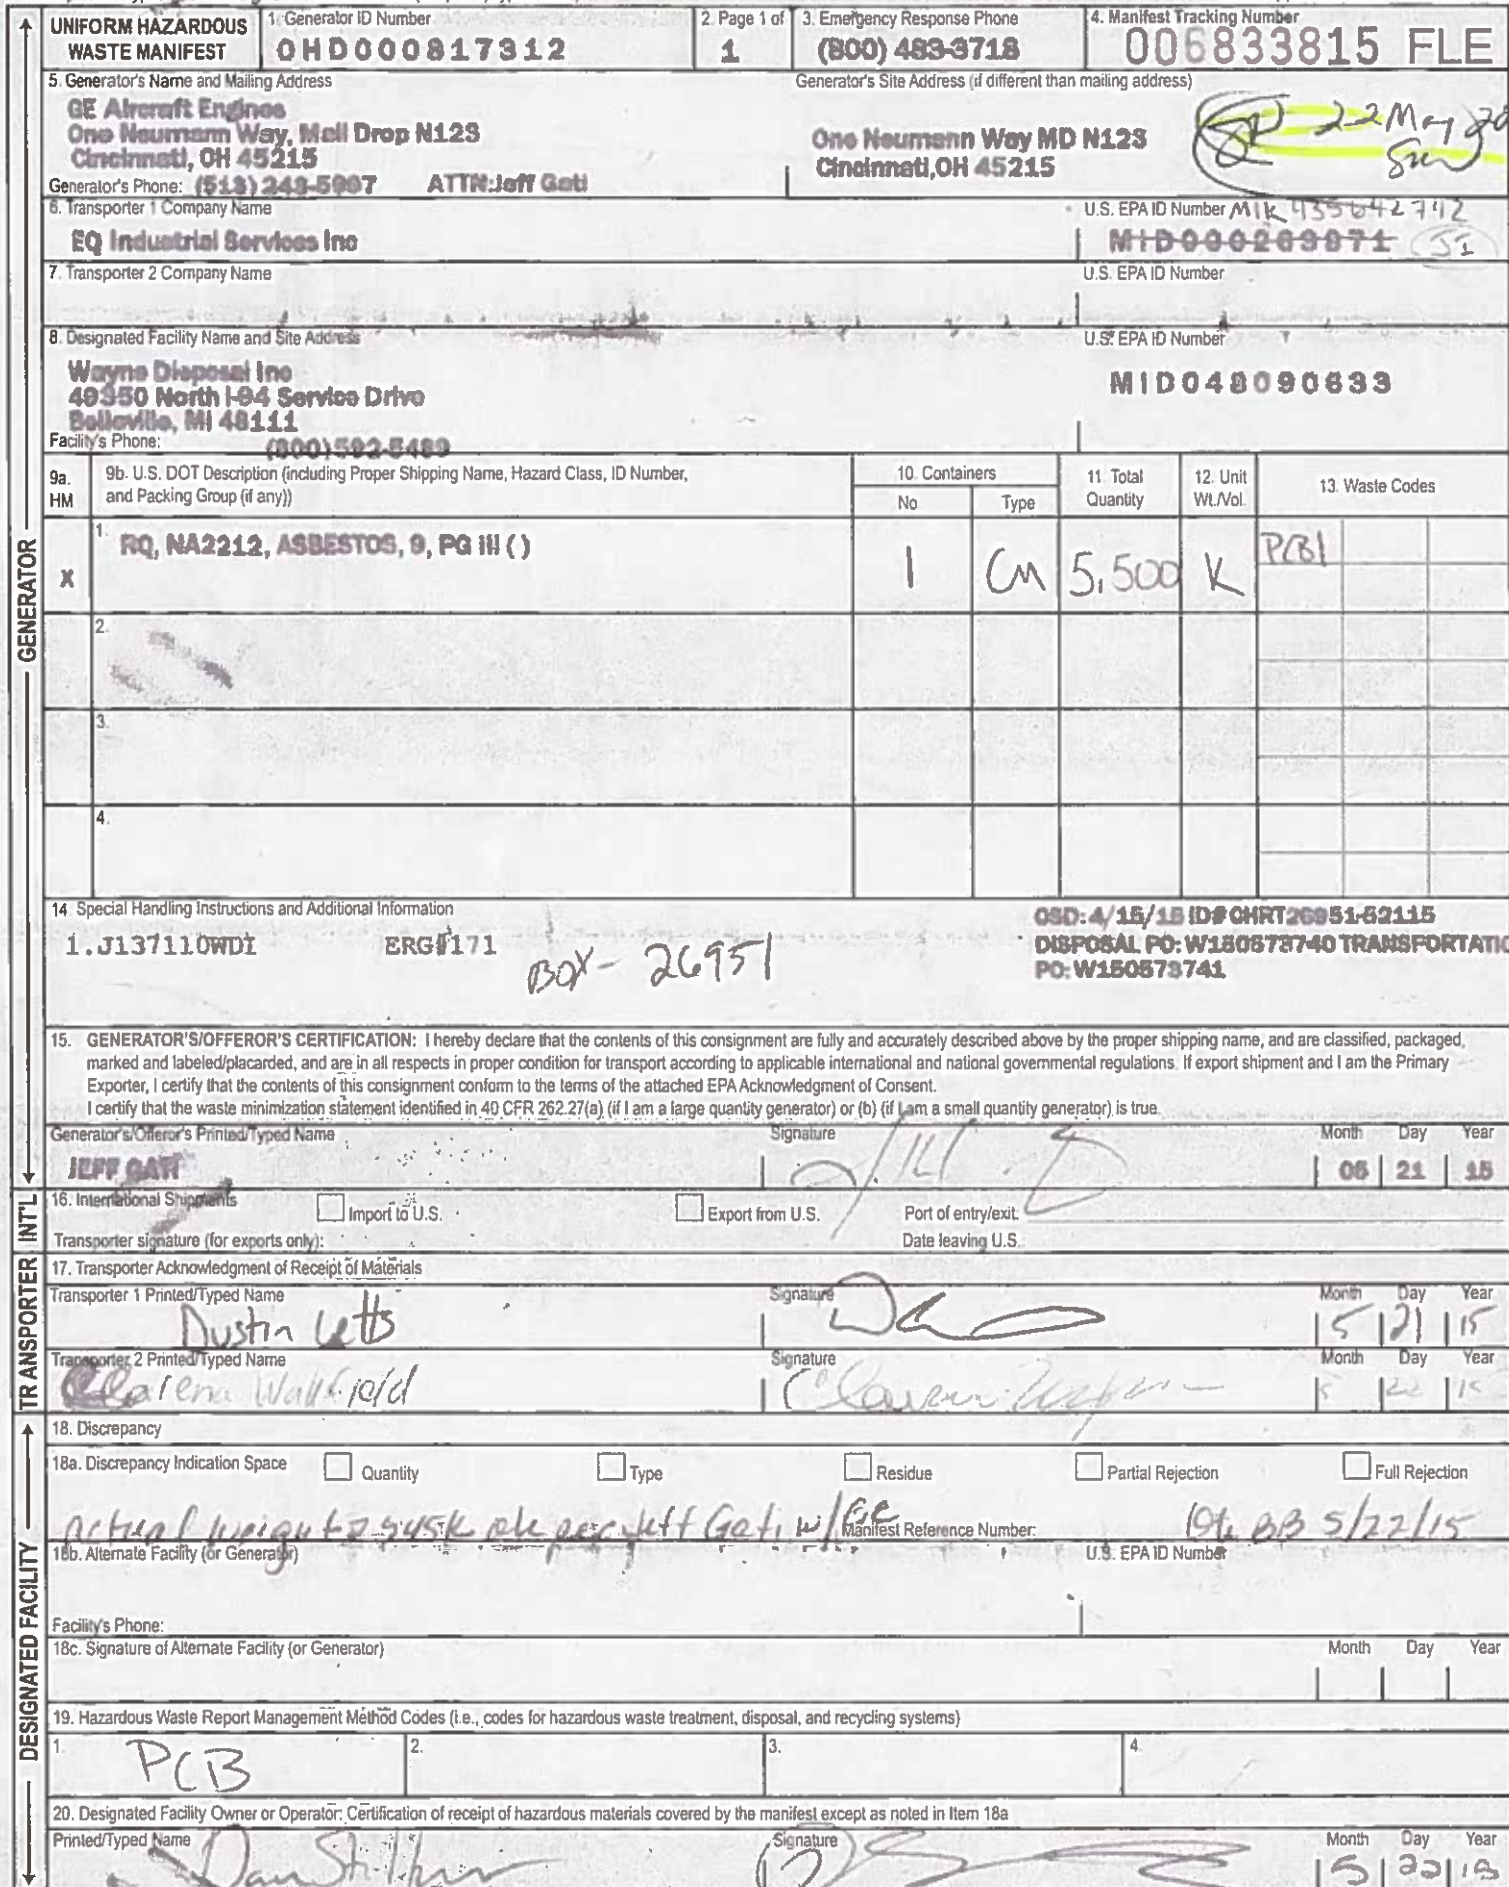 UNIFORM HAZARDOUS WASTE MANIFEST
1. Generator ID Number
OHD000817312
2. Page 1 of
1
3. Emergency Response Phone
(800) 483-3718
4. Manifest Tracking Number
006833815 FLE
5. Generator's Name and Mailing Address
GE Aircraft Engines
One Neumann Way, Mail Drop N123
Cincinnati, OH 45215
Generator's Phone: (513) 243-5997 ATTN:Jeff Gati
Generator's Site Address (if different than mailing address)
One Neumann Way MD N123
Cincinnati,OH 45215
22 May
6. Transporter 1 Company Name
EQ Industrial Services Inc
U.S. EPA ID Number MIK435642742
7. Transporter 2 Company Name
U.S. EPA ID Number
8. Designated Facility Name and Site Address
Wayne Disposal Inc
49350 North I-94 Service Drive
Belleville, MI 48111
Facility's Phone: (800)592-5489
U.S. EPA ID Number
MID048090633
9a. HM
9b. U.S. DOT Description (including Proper Shipping Name, Hazard Class, ID Number,
and Packing Group (if any))
10. Containers
No
Type
11. Total Quantity
12. Unit Wt./Vol.
13. Waste Codes
X
1. RQ, NA2212, ASBESTOS, 9, PG III ()
1 CM 5,500 K PCB1
2.
3.
4.
14. Special Handling Instructions and Additional Information
1.J137110WDI ERG#171
BOX- 26951
OSD:4/15/15 ID# OHRT26951-52115
DISPOSAL PO: W150573740 TRANSPORTATIO
PO: W150573741
15. GENERATOR'S/OFFEROR'S CERTIFICATION: I hereby declare that the contents of this consignment are fully and accurately described above by the proper shipping name, and are classified, packaged,
marked and labeled/placarded, and are in all respects in proper condition for transport according to applicable international and national governmental regulations. If export shipment and I am the Primary
Exporter, I certify that the contents of this consignment conform to the terms of the attached EPA Acknowledgment of Consent.
I certify that the waste minimization statement identified in 40 CFR 262.27(a) (if I am a large quantity generator) or (b) (if I am a small quantity generator) is true.
Generator's/Offeror's Printed/Typed Name
JEFF GATI
Signature
Month Day Year
05 21 15
16. International Shipments
Import to U.S.
Export from U.S.
Port of entry/exit:
Transporter signature (for exports only):
Date leaving U.S.:
17. Transporter Acknowledgment of Receipt of Materials
Transporter 1 Printed/Typed Name
Dustin Letts
Signature
Month Day Year
5 21 15
Transporter 2 Printed/Typed Name
Signature
Month Day Year
5 22 15
18. Discrepancy
18a. Discrepancy Indication Space
Quantity
Type
Residue
Partial Rejection
Full Rejection
Actual weight 2945K ok per Jeff Gati w/ GE
Manifest Reference Number:
BB 5/22/15
18b. Alternate Facility (or Generator)
U.S. EPA ID Number
Facility's Phone:
18c. Signature of Alternate Facility (or Generator)
Month Day Year
19. Hazardous Waste Report Management Method Codes (i.e., codes for hazardous waste treatment, disposal, and recycling systems)
1. PCB
2.
3.
4.
20. Designated Facility Owner or Operator: Certification of receipt of hazardous materials covered by the manifest except as noted in Item 18a
Printed/Typed Name
Signature
Month Day Year
5 22 15
GENERATOR
INT'L
TRANSPORTER
DESIGNATED FACILITY